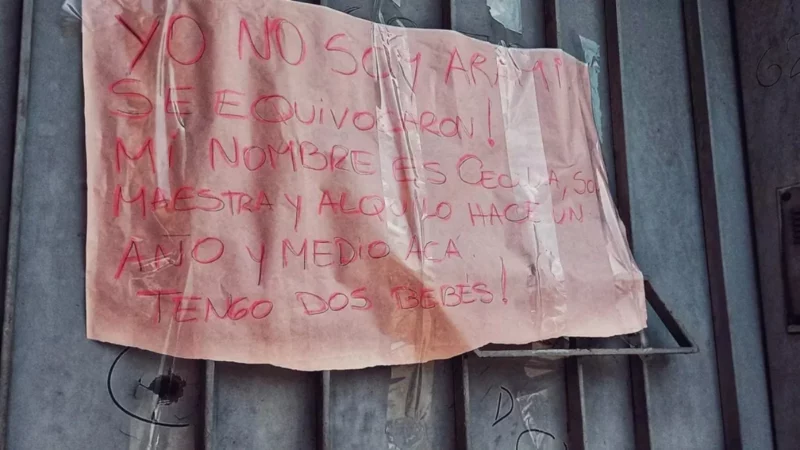 YO NO SOY ARAMI
SE EQUIVOCARON!
MI NOMBRE ES CECILIA, SOY
MAESTRA Y ALQUILO HACE UN
AÑO Y MEDIO ACÁ.
TENGO DOS BEBÉS!